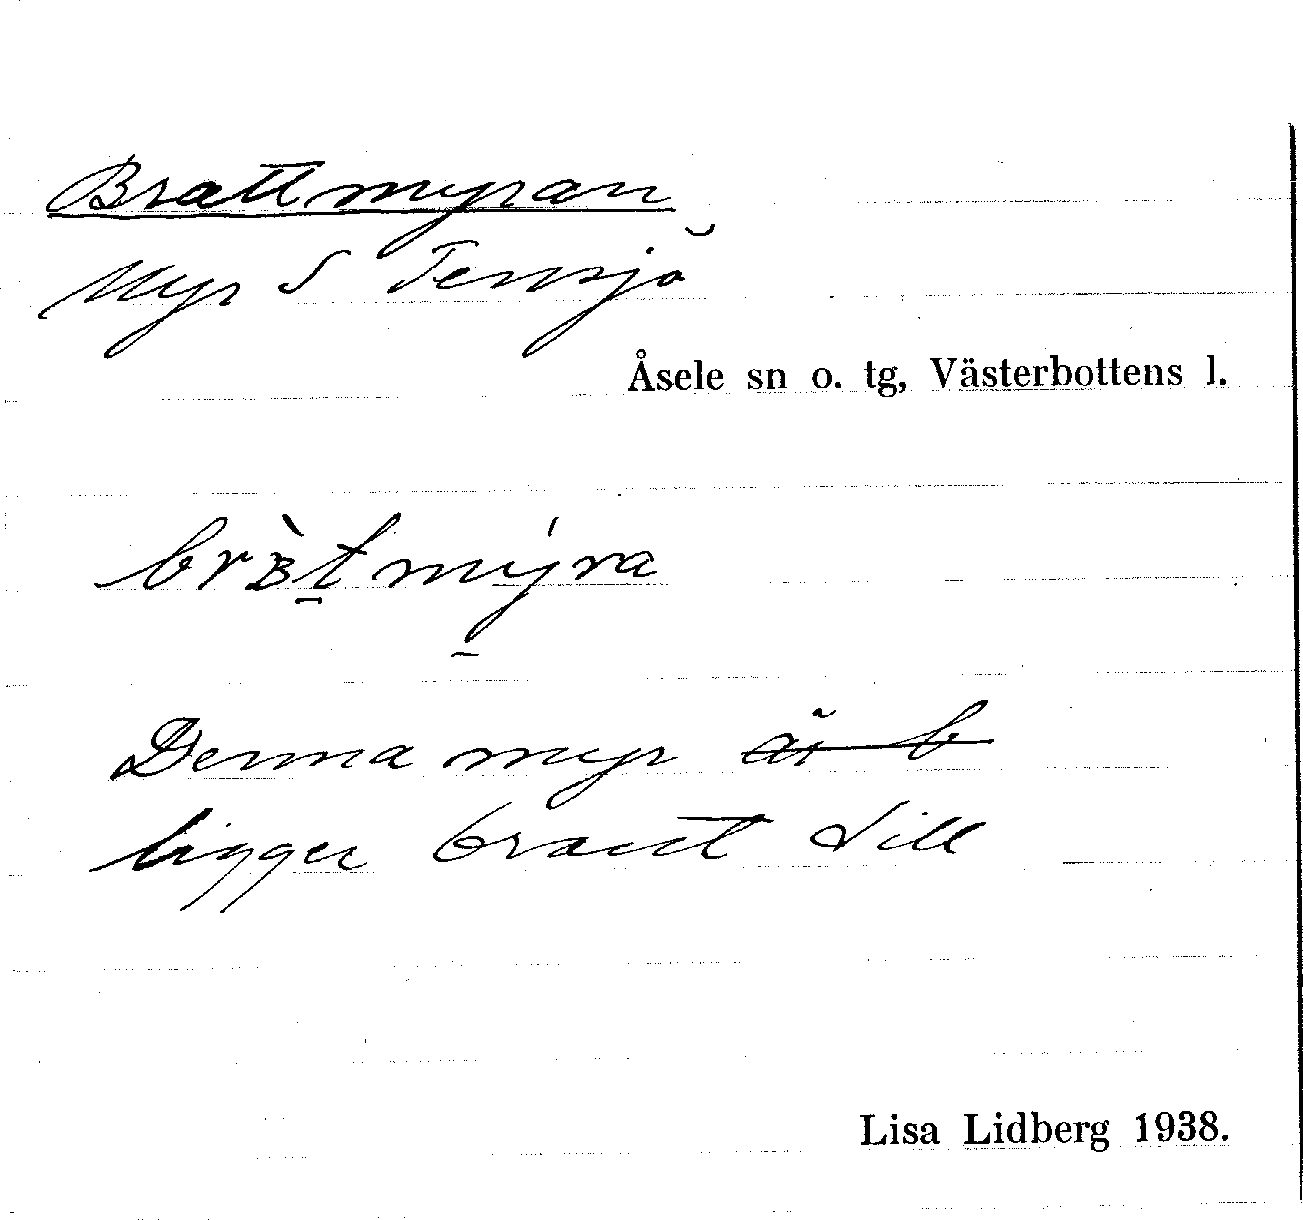 Brattmyran
Myr S Tensjö
Åsele sn o. tg, Västerbottens l.
Denna myr är b
ligger brant till
Lisa Lidberg 1938.